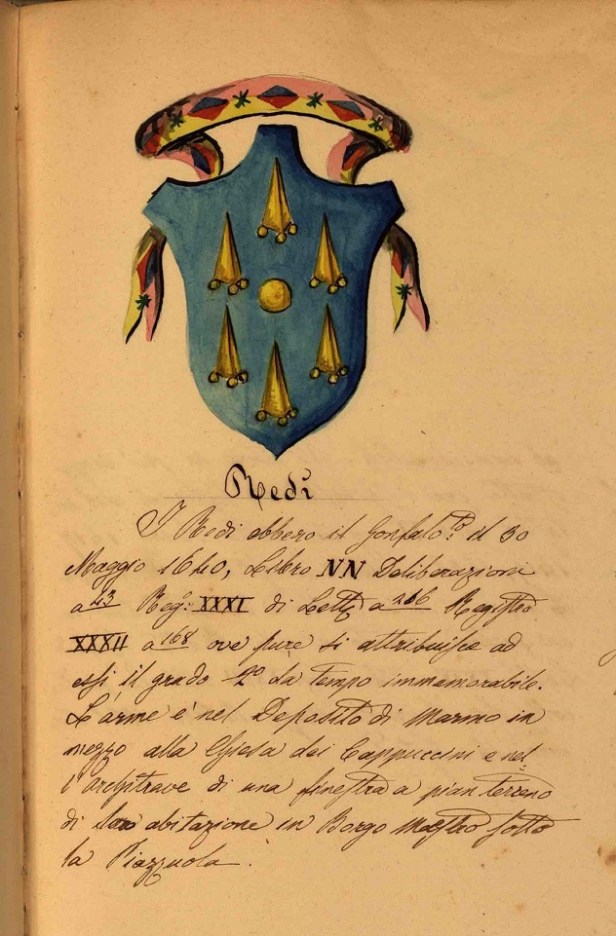 Redi
I Redi ebbero il Gonfalo.to il 30
Maggio 1640, Libro NN Deliberazioni
a 43 Reg: XXXI di Lett a 266 Registro
XXXII a 168 ove pure si attribuisce ad
essi il grado 2º da tempo immemorabile.
L'arme è nel Deposito di Marmo in
mezzo alla Chiesa dei Cappuccini e nel-
l'architrave di una finestra a pian terreno
di loro abitazione in Borgo Maestro sotto
la Piazzuola.